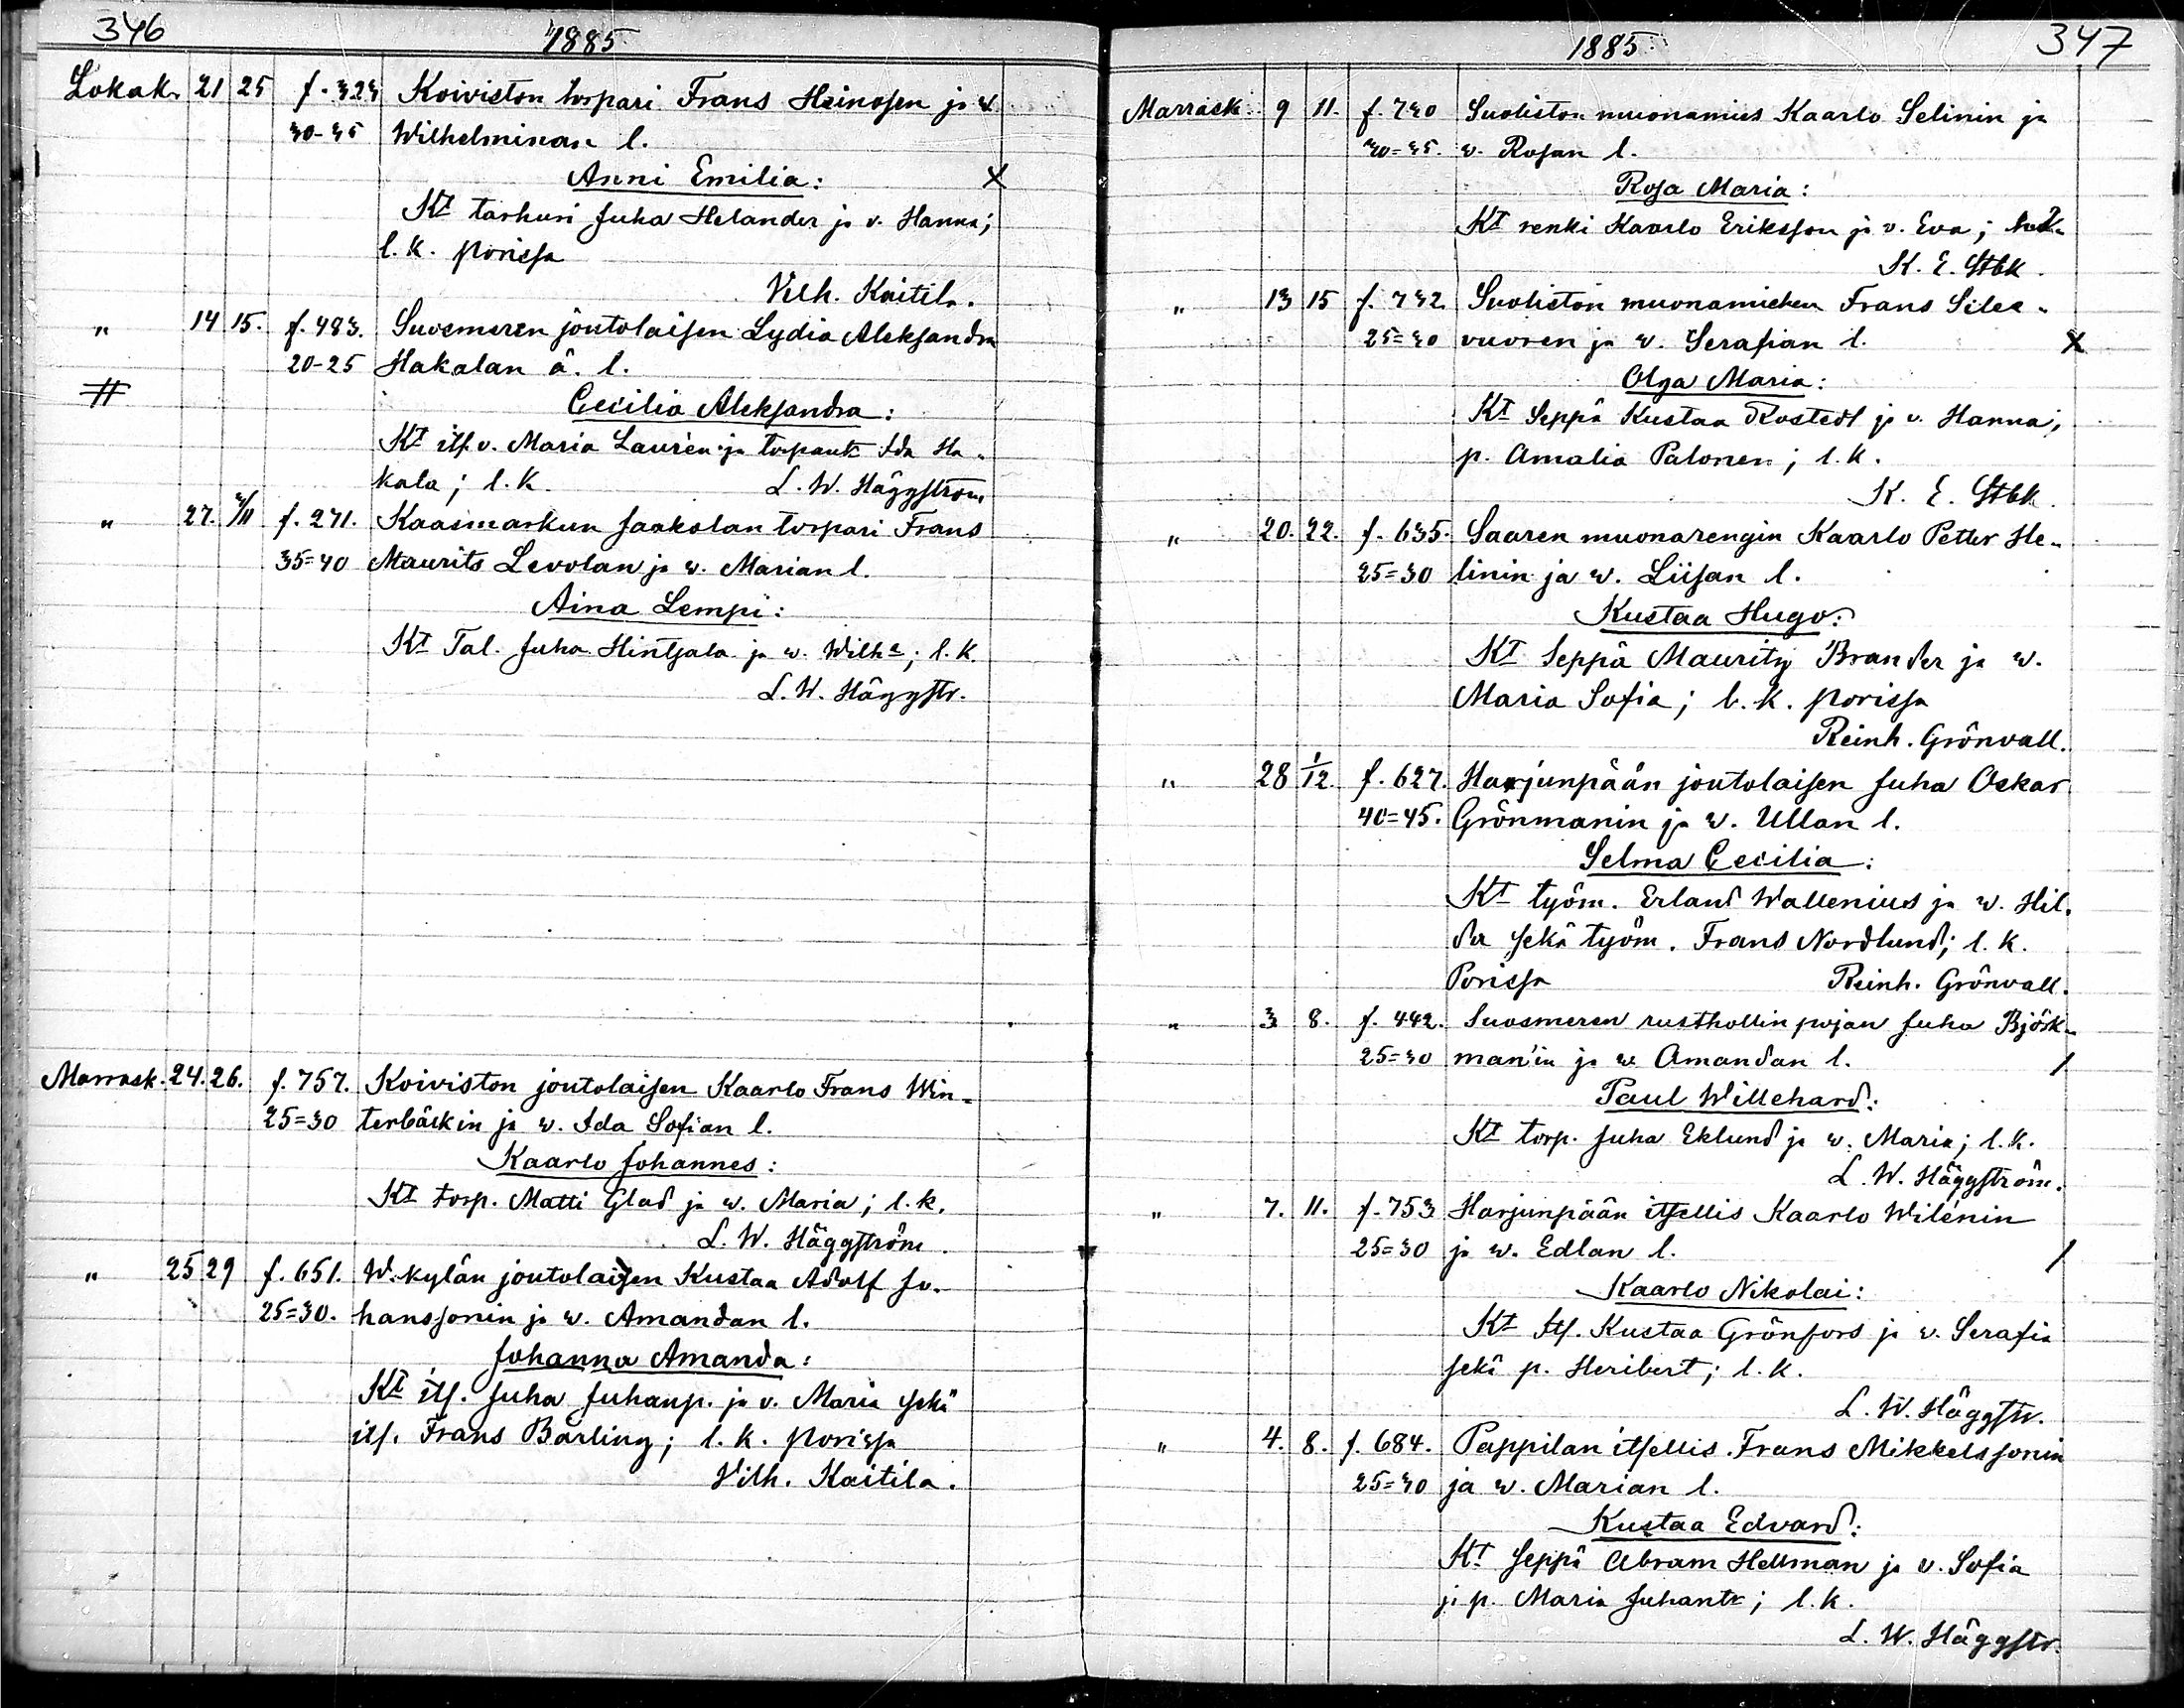 346
1885
Lokak. 21 25 f. 323 Koiviston torpari Frans Heinosen ja w.
30-35 Wilhelminan l.
Anni Emilia: X
Kt tarhuri Juha Helander ja v. Hanna;
l. k. porissa
Vilh. Kaitila.
" 14 15. f. 483. Suosmeren joutolaisen Lydia Aleksandra
20-25 Hakalan ä. l.
#
Cecilia Aleksandra:
Kt its. v. Maria Laurén ja Ida Ha-
kala; l. k. L. W. Häggström
" 27. f. 271. Kaasmarkun Jaakolan torpari Frans
35=40 Maurits Levolan ja w. Marian l.
Aina Lempi:
Kt Tal. Juha Hintsala ja w. Wilha; l. k.
L. W. Häggstr.
Marrask. 24. 26. f. 757. Koiviston joutolaisen Kaarlo Frans Win-
25=30 terbäckin ja w. Ida Sofian l.
Kaarlo Johannes:
Kt torp. Matti Glad ja w. Maria; l. k.
L. W. Häggström.
" 25 29 f. 651. W.kylän joutolaisen Kustaa Adolf Jo-
25=30. hanssonin ja w. Amandan l.
Johanna Amanda:
Kt its. Juha Juhanp. ja v. Maria sekä
its. Frans Bärling; l. k. porissa
Vilh. Kaitila.
1885
347
Marrask. 9 11. f. 730 Suoliston muonamies Kaarlo Selinin ja
30=35. w. Rosan l.
Rosa Maria:
Kt renki Kaarlo Eriksson ja v. Eva;
K. E. Stbk.
" 13 15 f. 732. Suoliston muonamiehen Frans Silea-
25=30 vuoren ja w. Serafian l. X
Olga Maria:
Kt Seppä Kustaa Rostedt ja v. Hanna;
p. Amalia Palonen; l. k.
K. E. Stbk.
" 20. 22. f. 635. Saaren muonarengin Kaarlo Petter He-
25=30 linin ja w. Liisan l.
Kustaa Hugo:
Kt Seppä Maurits Brander ja w.
Maria Sofia; l. k. porissa
Reinh. Grönvall.
" 28 1/12. f. 627. Harjunpään joutolaisen Juha Oskar
40=45. Grönmanin ja w. Ullan l.
Selma Cecilia:
Kt työm. Erland Wallenius ja w. Hil-
da sekä työm. Frans Nordlund; l. k.
Porissa Reinh. Grönvall.
" 3 8. f. 442. Suosmeren rusthollin pojan Juha Björk-
25=30 man'in ja w. Amandan l. /
Paul Willehard:
Kt torp. Juha Eklund ja w. Maria; l. k.
L. W. Häggström.
" 7. 11. f. 753 Harjunpään itsellis Kaarlo Wilénin
25=30 ja w. Edlan l. /
Kaarlo Nikolai:
Kt its. Kustaa Grönfors ja v. Serafia
sekä p. Heribert; l. k.
L. W. Häggstr.
" 4. 8. f. 684. Pappilan itsellis. Frans Mikkelssonin
25=30 ja w. Marian l.
Kustaa Edvard:
Kt seppä Abram Hellman ja v. Sofia
ja p. Maria Juhantr; l. k.
L. W. Häggstr.